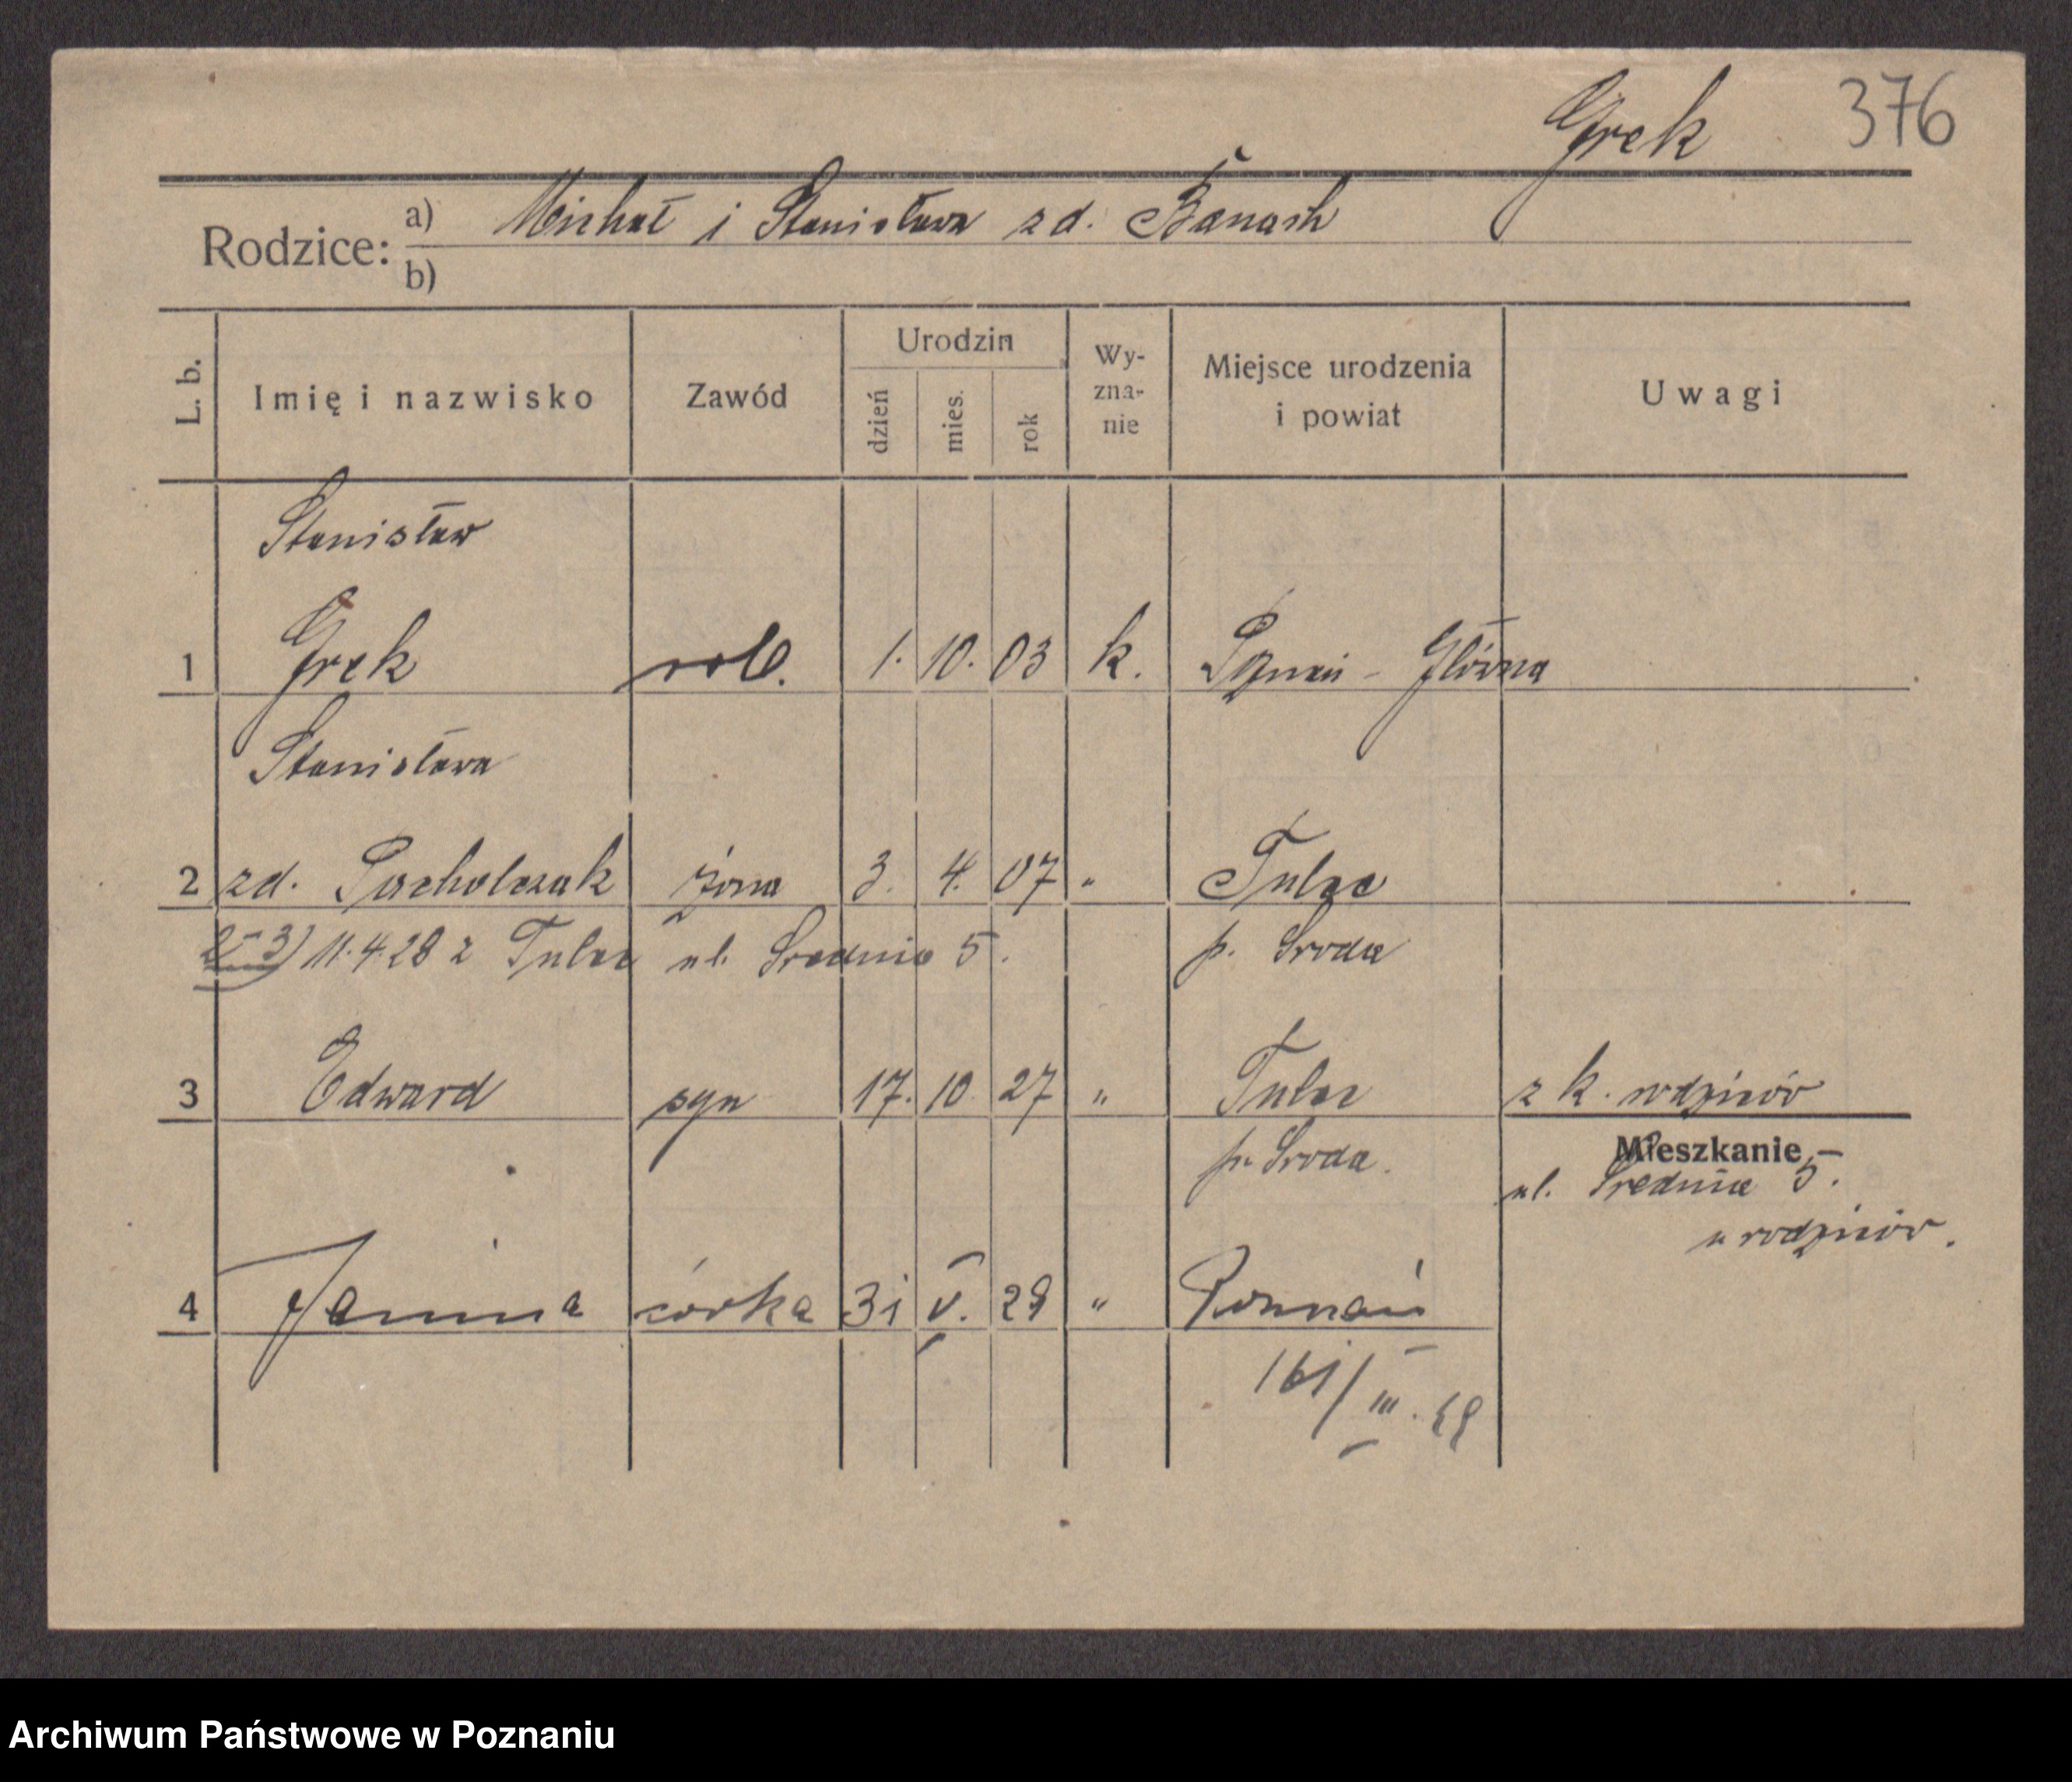 Grek 376
Rodzice: a) Michał i Stanisława zd. Banach
b)
L. b. Imię i nazwisko Zawód Urodzin dzień mies. rok Wy-zna-nie Miejsce urodzenia i powiat Uwagi
Stanisław
1 Grek rob. 1. 10. 03 k. Poznań - Główna
Stanisława
2 zd. Pacholczak żona 3. 4. 07 " Tulce
2-3) 11.4.28 z Tulec ul. Średnia 5. p. Środa
3 Edward syn 17. 10. 27 " Tulce z k. rodziców
p. Środa. Mieszkanie
ul. Średnia 5.
u rodziców.
4 Janina córka 31 V. 29 " Poznań
161/III.
Archiwum Państwowe w Poznaniu